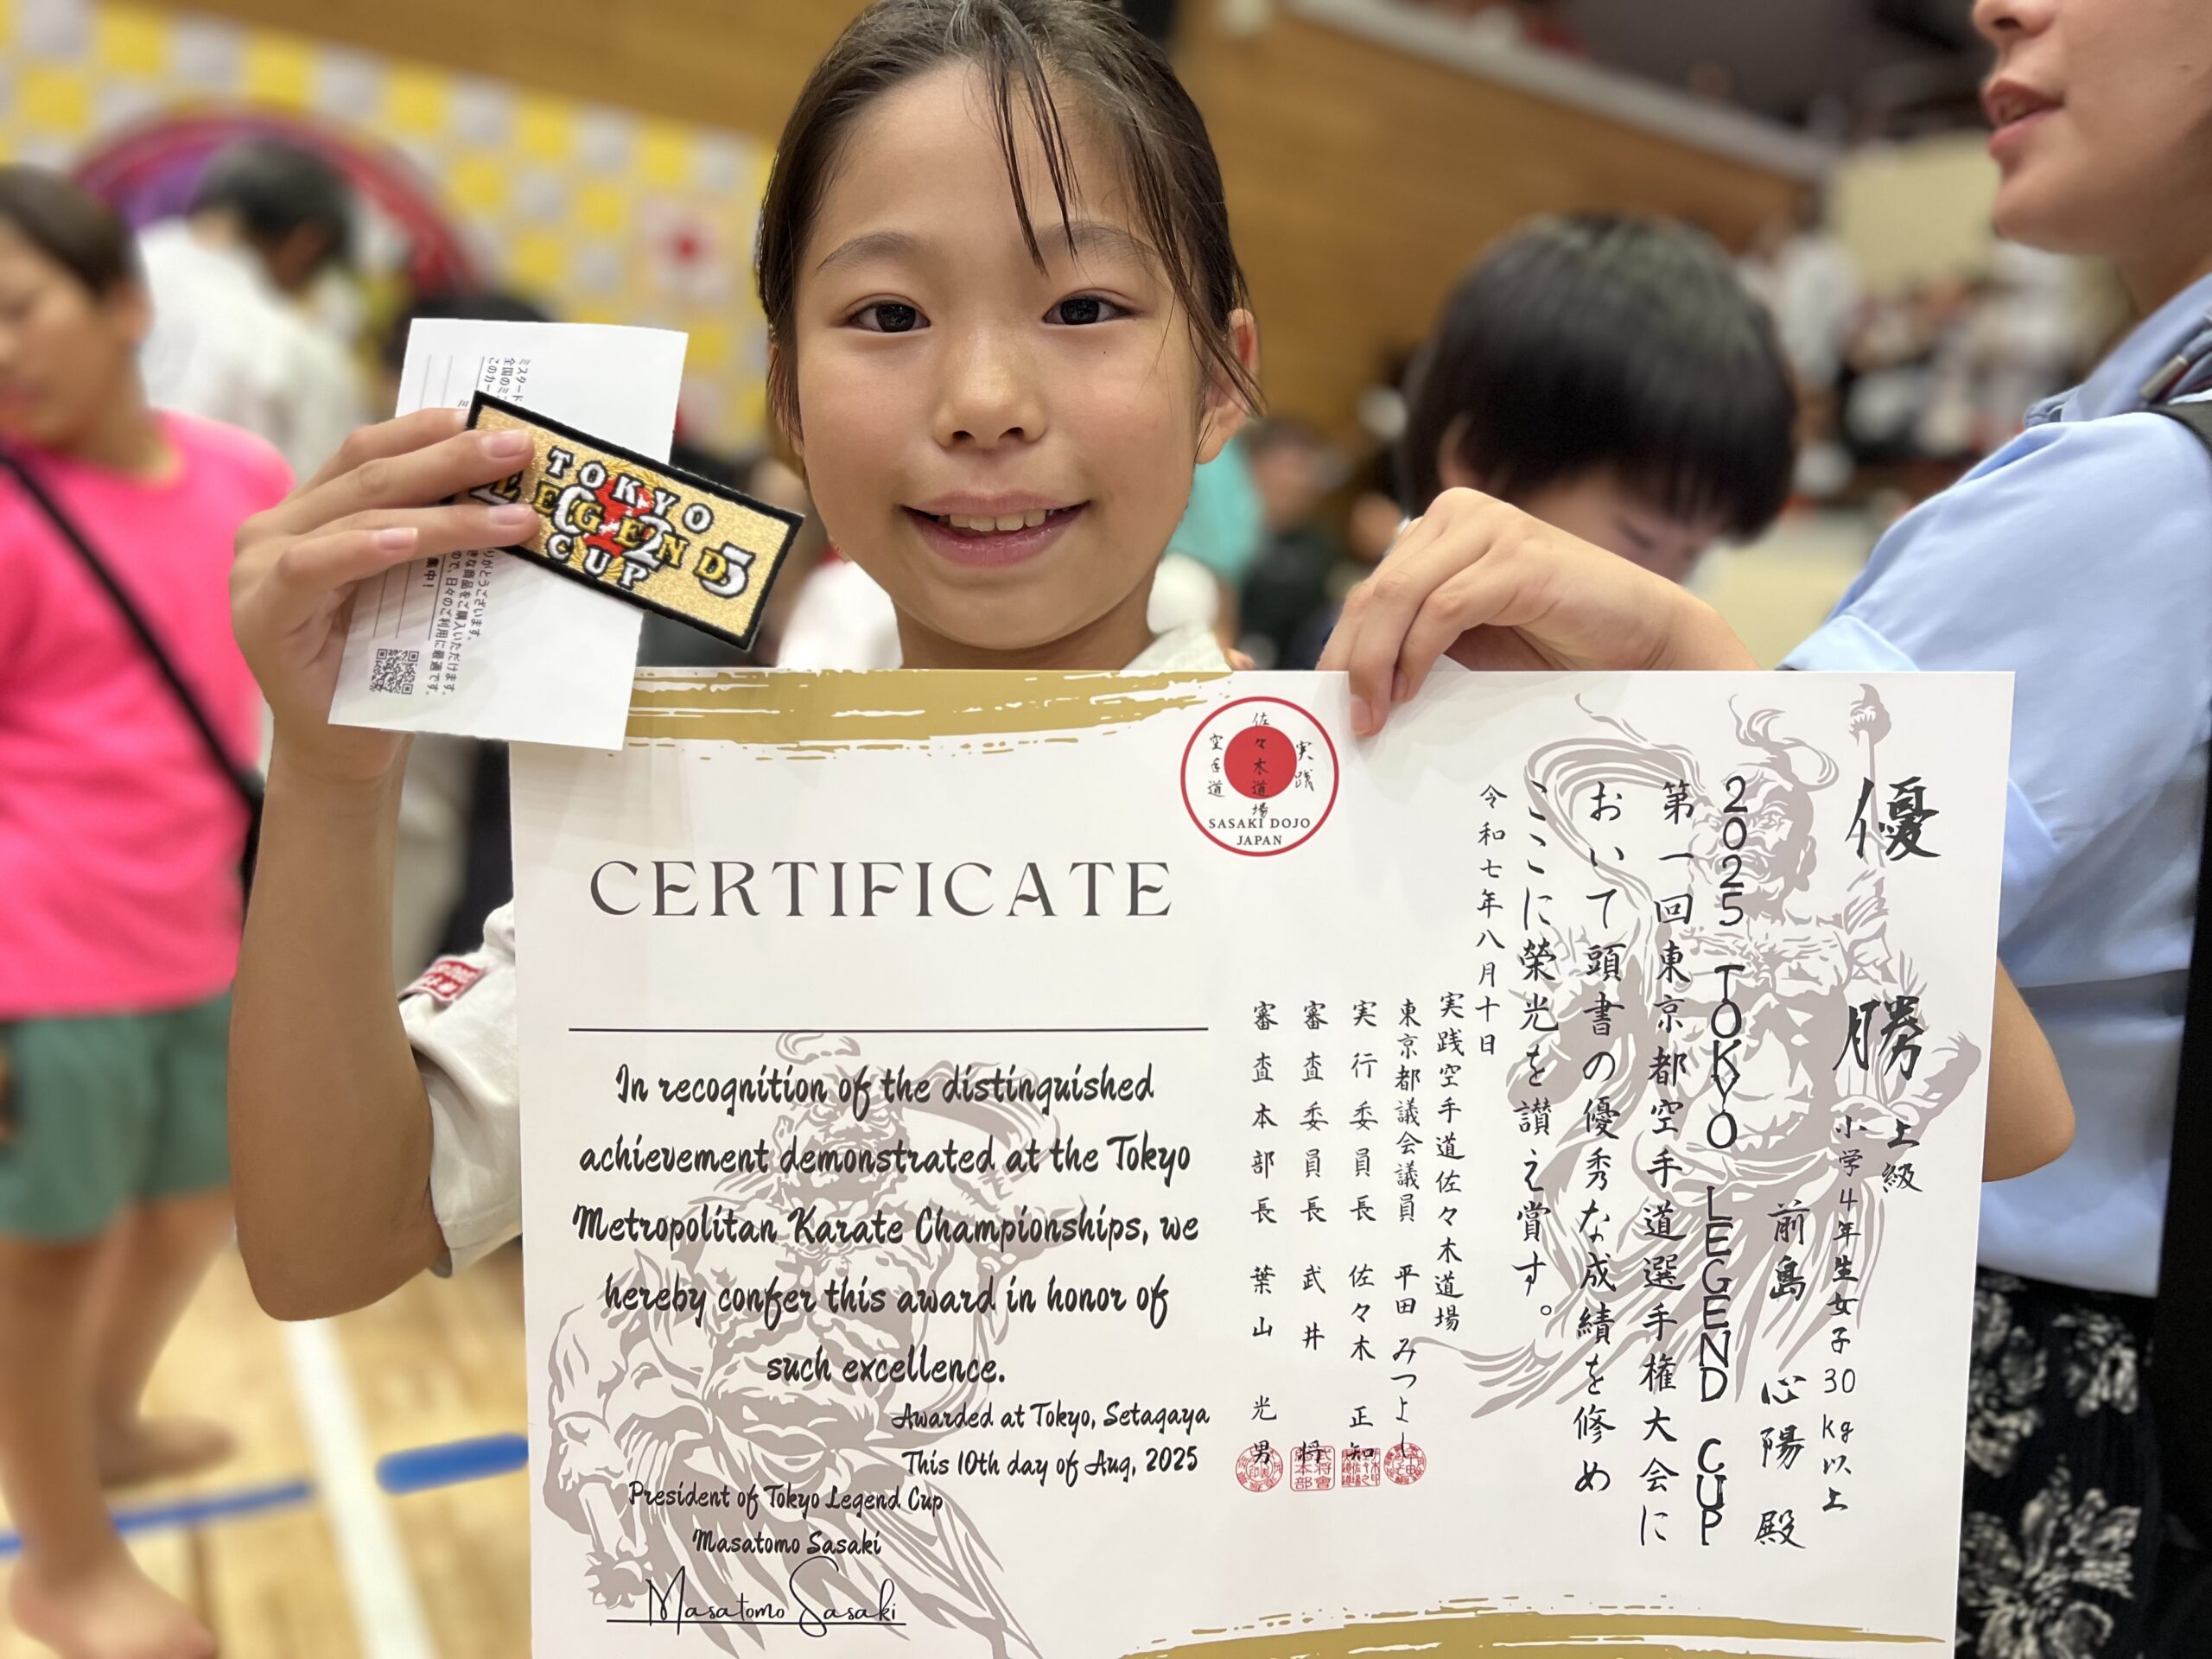 TOKYO
LEGEND
CUP
ミスタード
全国のミ
このカー
りがとうございます。
きな商品をご購入いただけます。
ので、日々のご利用に最適です。
集中!
佐々木道場
実践
空手道
SASAKI DOJO
JAPAN
CERTIFICATE
In recognition of the distinguished
achievement demonstrated at the Tokyo
Metropolitan Karate Championships, we
hereby confer this award in honor of
such excellence.
Awarded at Tokyo, Setagaya
This 10th day of Aug, 2025
President of Tokyo Legend Cup
Masatomo Sasaki
Masatomo Sasaki
優勝
上級
小学4年生女子30kg以上
前島 心陽 殿
2025 TOKYO LEGEND CUP
第一回東京都空手道選手権大会に
おいて頭書の優秀な成績を修め
ここに榮光を讃え賞す。
令和七年八月十日
実践空手道佐々木道場
東京都議会議員 平田みつよし
実行委員長 佐々木 正知
審査委員長 武井 将
審査本部長 葉山 光男